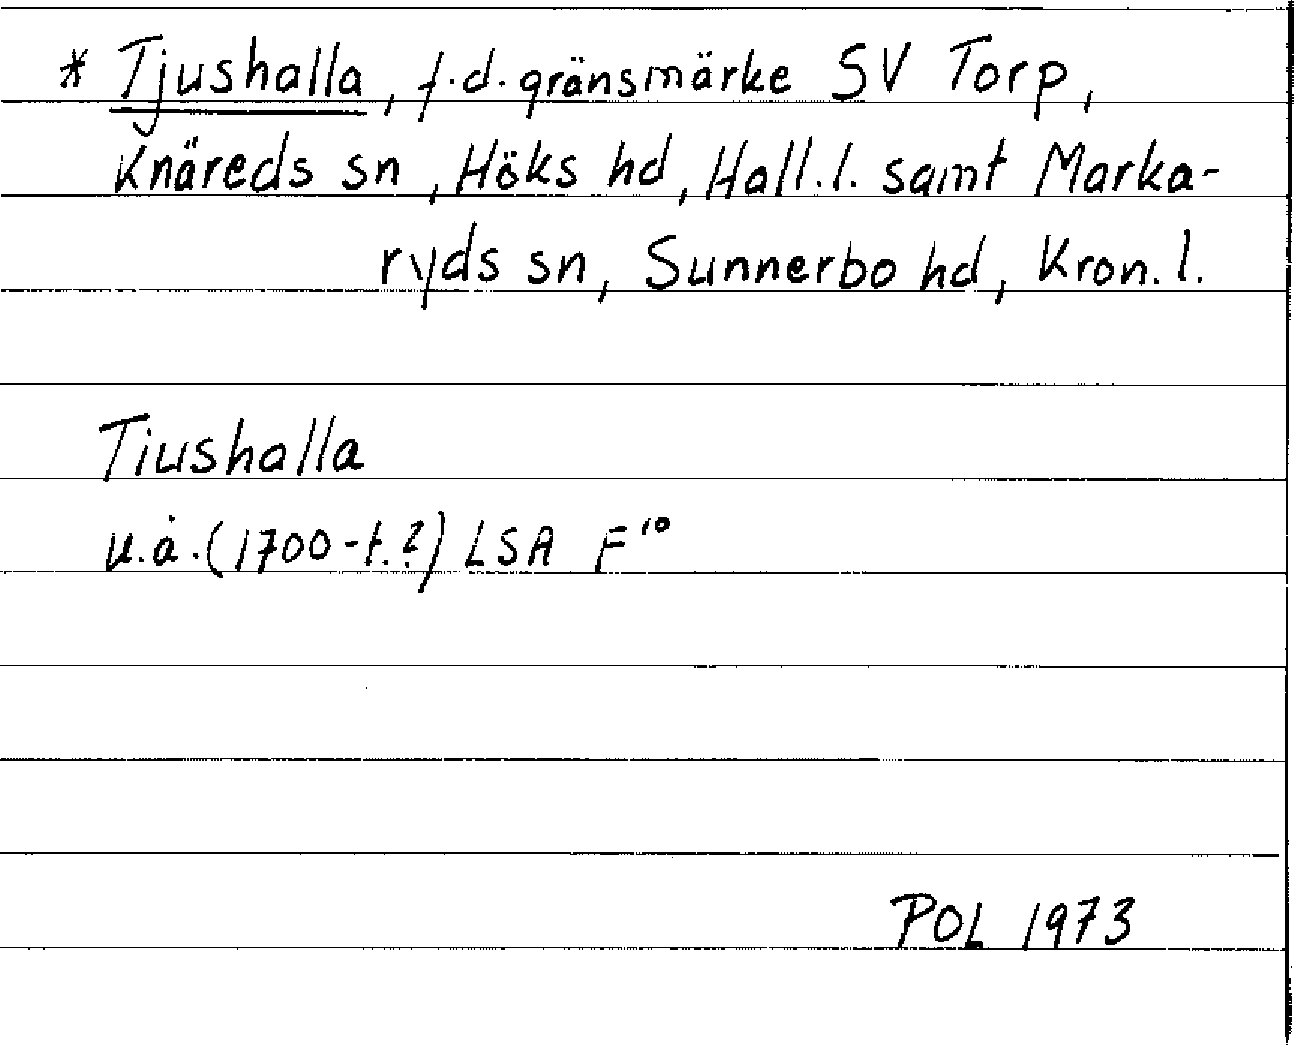 * Tjushalla, f.d. gränsmärke SV Torp,
Knäreds sn, Höks hd, Hall.l. samt Marka-
ryds sn, Sunnerbo hd, Kron.l.
Tiushalla
u.å. (1700-t.?) LSA F¹⁰
POL 1973